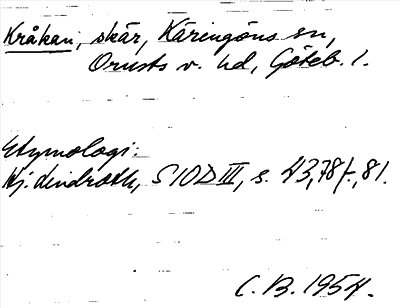 Kråkan, skär, Käringöns sn,
Orusts v. hd, Göteb. l.
Etymologi:
Hj. Lindroth, SIOD III, s. 43, 78 f., 81.
C. B. 1954.